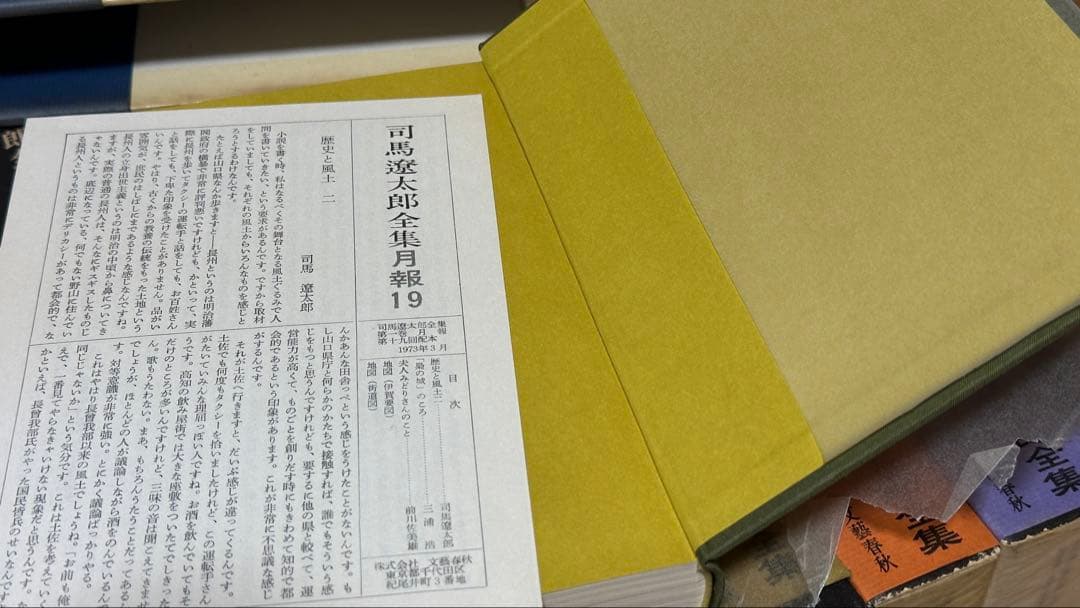 司馬遼太郎全集月報19
司馬遼太郎全集月報
第一巻
第十九回配本
1973年3月
目次
歴史と風土 二……………司馬遼太郎
「梟の城」のころ……………三浦 浩
夫人みどりさんのこと……………前川佐美雄
地図(伊賀要図)
地図(街道図)
株式会社文藝春秋
東京都千代田区
紀尾井町3番地
歴史と風土 二
司馬 遼太郎
小説を書く時、私はなるべくその舞台となる風土ぐるみで人
間を書いていきたい、という要求があるんです。ですから取材
をしていましても、それぞれの風土からいろんなものを感じと
ろうとするわけなんです。
たとえば山口県なんか歩きますと──長州というのは明治藩
閥政府の横暴で非常に評判悪いですけれども、かといって、実
際に長州を歩いてタクシーの運転手と話をしても、お百姓さん
と話をしても、下卑た印象を受けたことがありません。品がい
いんです。やはり、古くからの教養の伝統をもった土地という
雰囲気が、庶民のはしばしにまであるような感じなんですね。
長州人の立身出世主義というのは明治の中頃から鼻についてき
ますが、実際の普通の長州人は、そんなにギスギスしたものじ
ゃないんです。底辺になっている、何でもない野山に住んでい
る長州人というものは非常にデリカシーがあって都会的で、な
んかあんな田舎っぺという感じをうけたことがないんです。も
し山口県庁と何らかのかたちで接触すれば、誰でもそういう感
じをもつと思うんですけれども、要するに他の県と較べて、運
営能力が高くて、ものごとを創りだす時にもきわめて知的で都
会的であるという印象があります。これが非常に不思議な感じ
がするんです。
それが土佐へ行きますと、だいぶ感じが違ってくるんです。
土佐でも何度もタクシーを拾いましたけれど、この運転手さん
がたいていみんな理屈っぽい人ですね。お酒を飲んでいてもそ
うです。高知の飲み屋街では大きな座敷をついたてでしきった
だけのところが多いんですけれど、三味の音は聞こえてきませ
ん。歌もうたわない。まあ、もちろんうたうことだってある
でしょうが、ほとんどの人が議論しながら酒をのんでいるんで
す。対等意識が非常に強い。とにかく議論ばっかりやる。
これはやはり長曾我部以来の風土でしょうね。「お前も俺も
同じじゃないか」という気分です。これは土佐を考えていく
えで、一番見てやらなきゃいけない現象だと思うんです。な
かといえば、長曾我部氏がやった国民皆兵のせいなんです
全集
文藝春秋
全集
春秋
集